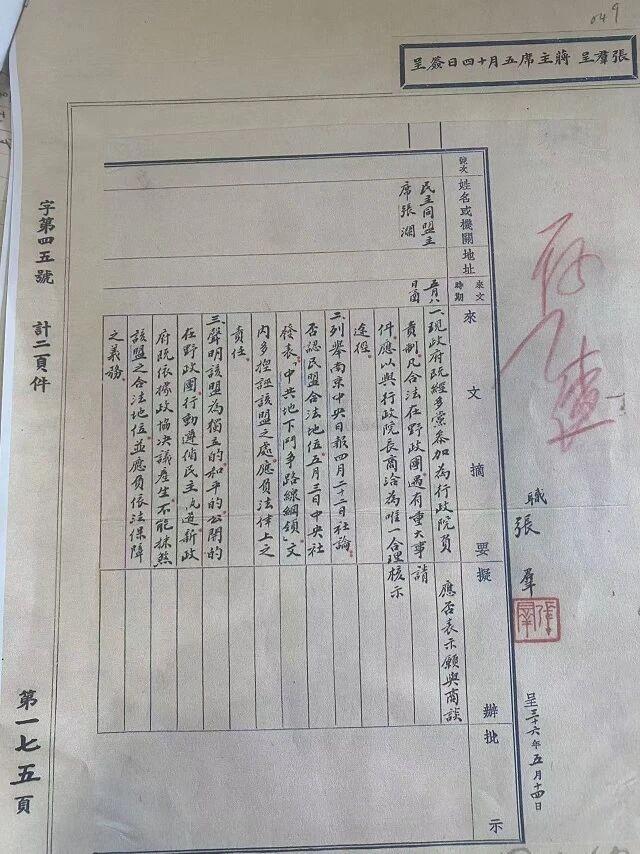 049
張羣呈 蔣主席五月十四日簽呈
職
張羣
呈三十六年五月十四日
號次
姓名或機關
地址
來文時期
來文摘要
擬辦
批示
民主同盟主
席張瀾
五月八
日函
一、現政府既經多黨參加為行政院負
責制凡合法在野政團遇有重大事
件應以與行政院長商洽為唯一合理
途徑。
二、列舉南京中央日報四月二十二日社論
否認民盟合法地位五月三日中央社
發表「中共地下鬥爭路線綱領」文
內多揑誣該盟之處應負法律上之
責任。
三、聲明該盟為獨立的和平的公開的
在野政團行動遵循民主常道新政
府既依據政協決議產生不能抹煞
該盟之合法地位並應負依法保障
之義務。
應否表示願與商談
請
核示
字第四五號 計二頁件
第一七五頁